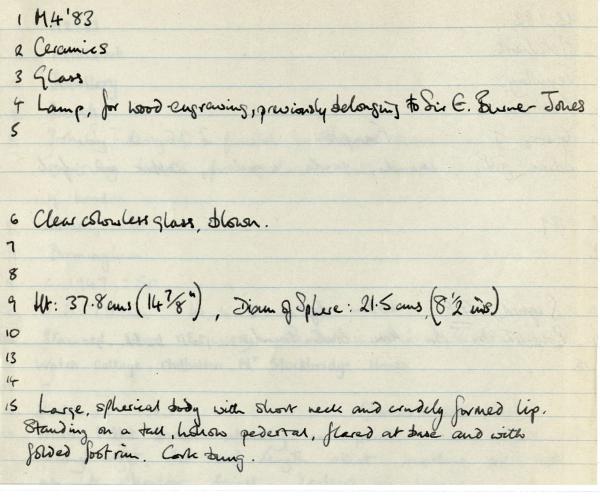 1 M.4'83
2 Ceramics
3 Glass
4 Lamp, for wood-engraving, previously belonging to Sir E. Burner Jones
5
6 Clear colourless glass, blown.
7
8
9 Ht: 37.8cms (14 7/8"), Diam of Sphere: 21.5cms, (8 1/2 ins)
10
13
14
15 Large, spherical body with short neck and crudely formed lip.
Standing on a tall, hollow pedestal, flared at base and with
folded footrim. Cork bung.